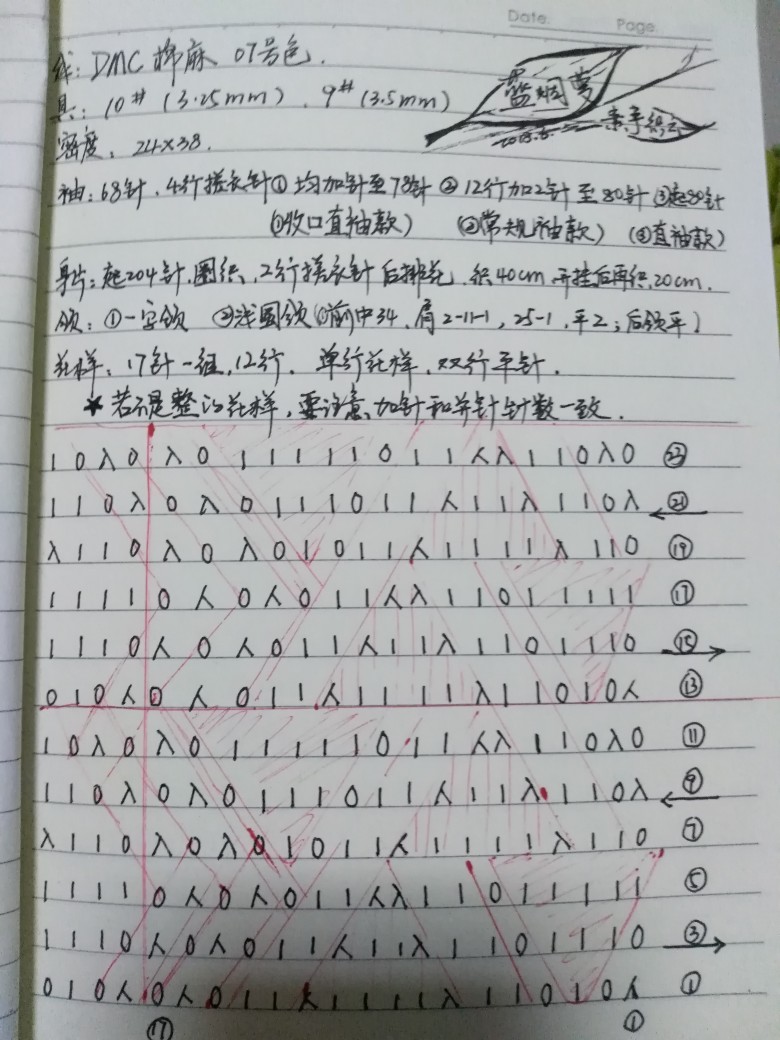 Date. Page
线: DMC 棉麻 07号色.
具: 10# (3.25mm). 9# (3.5mm)
蓝烟梦
亲手织云
密度: 24×38.
袖: 68针, 4行搓衣针① 均加针至78针 ② 12行加2针至80针 ③起80针
(①收口直袖款) (②常规袖款) (③直袖款)
身片: 起204针, 圈织, 2行搓衣针后排花, 织40cm 开挂后再织20cm.
领: ①一字领 ②浅圆领(前中34, 肩2-11-1, 25-1, 平2; 后领平)
花样: 17针一组, 12行. 单行花样, 双行平针.
★若不是整的花样, 要注意加针和并针针数一致.
1 0 λ 0 λ 0 1 1 1 1 1 0 1 1 人 λ 1 1 0 λ 0 ㉓
1 1 0 λ 0 λ 0 1 1 1 0 1 1 人 1 1 λ 1 1 0 λ ㉑ ←
λ 1 1 0 λ 0 λ 0 1 0 1 1 人 1 1 1 1 λ 1 1 0 ⑲
1 1 1 1 0 人 0 人 0 1 1 人 λ 1 1 0 1 1 1 1 1 ⑰
1 1 1 0 人 0 人 0 1 1 人 1 1 λ 1 1 0 1 1 1 0 ⑮ →
0 1 0 人 0 人 0 1 1 人 1 1 1 1 λ 1 1 0 1 0 人 ⑬
1 0 λ 0 λ 0 1 1 1 1 1 0 1 1 人 λ 1 1 0 λ 0 ⑪
1 1 0 λ 0 λ 0 1 1 1 0 1 1 人 1 1 λ 1 1 0 λ ⑨ ←
λ 1 1 0 λ 0 λ 0 1 0 1 1 人 1 1 1 1 λ 1 1 0 ⑦
1 1 1 1 0 人 0 人 0 1 1 人 λ 1 1 0 1 1 1 1 1 ⑤
1 1 1 0 人 0 人 0 1 1 人 1 1 λ 1 1 0 1 1 1 0 ③ →
0 1 0 人 0 人 0 1 1 人 1 1 1 1 λ 1 1 0 1 0 人 ①
⑰ ①